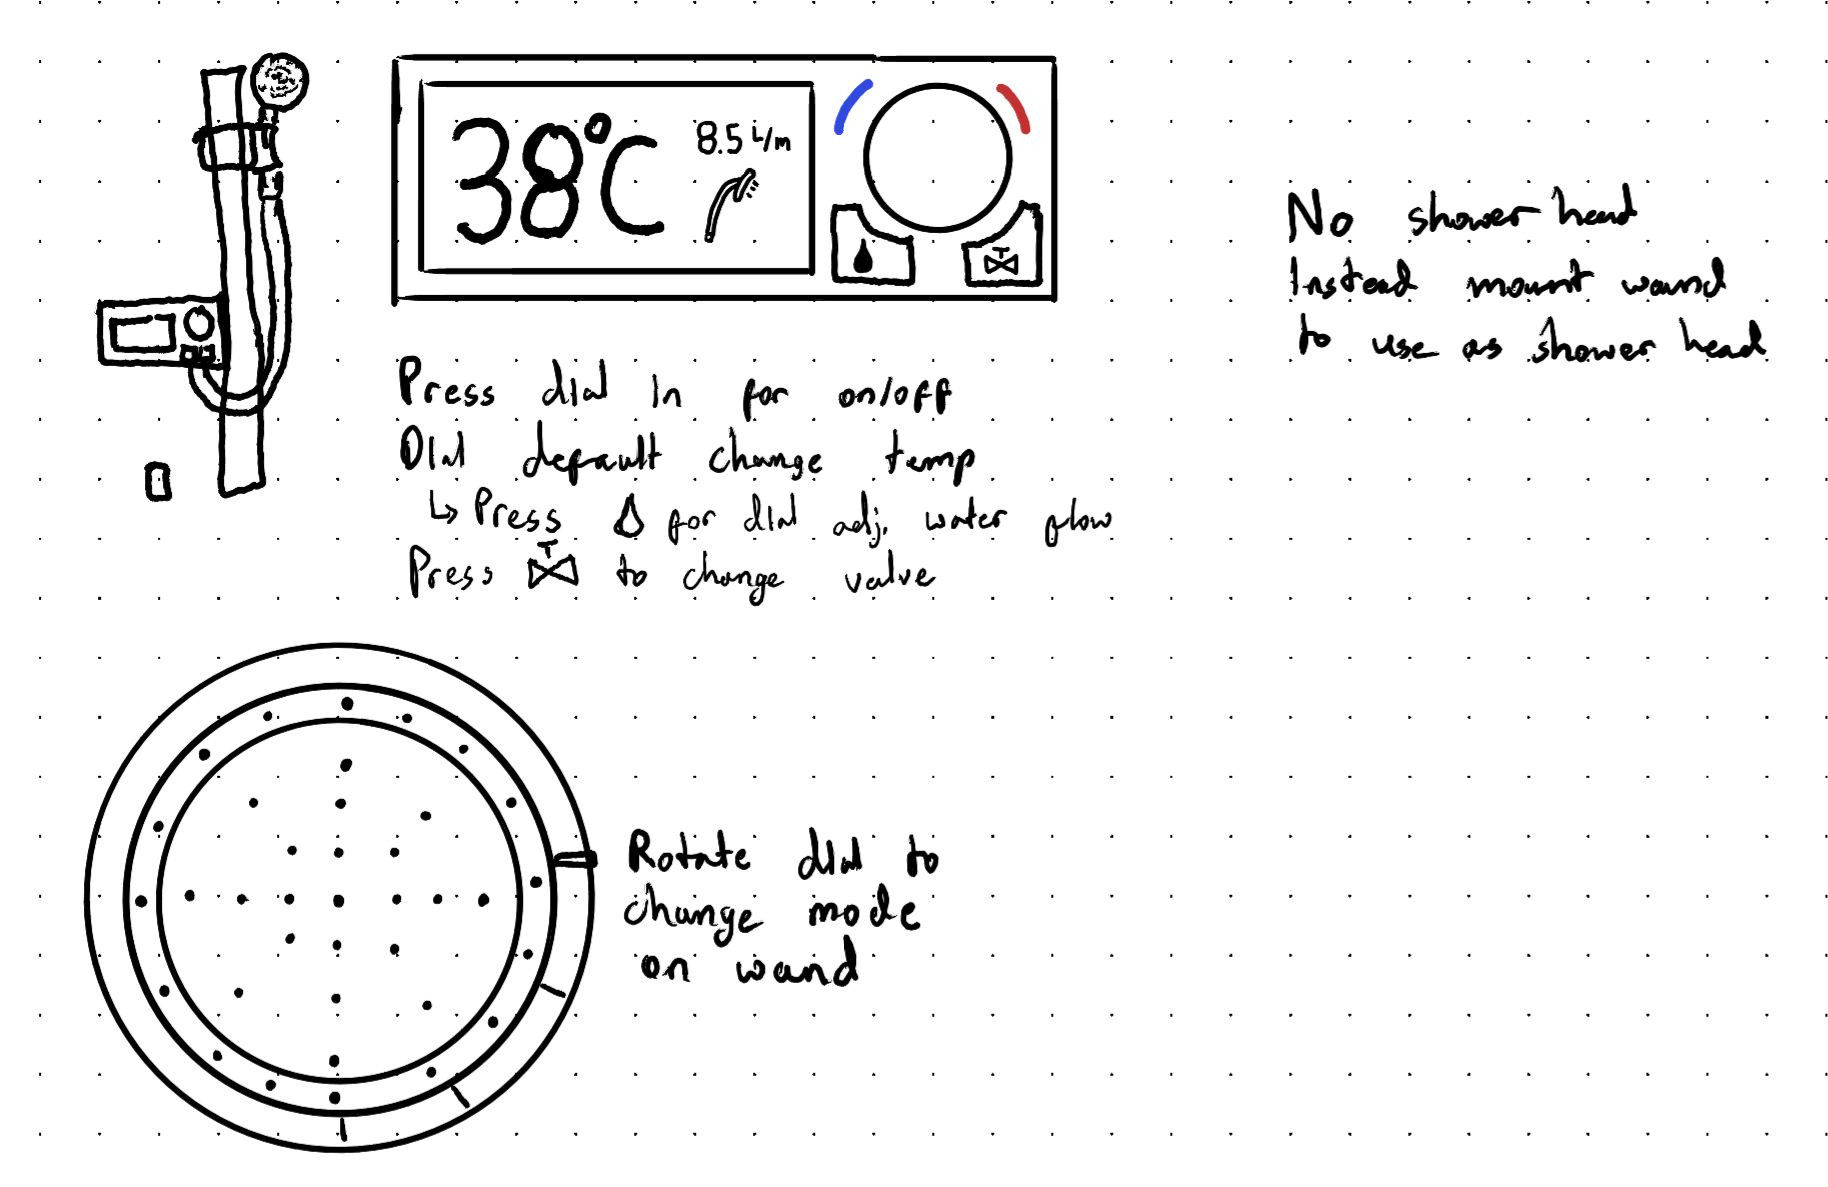 38°C
8.5 L/m
No shower head
Instead mount wand
to use as shower head
Press dial in for on/off
Dial default change temp
↳ Press 💧 for dial adj. water flow
Press to change valve
Rotate dial to
change mode
on wand